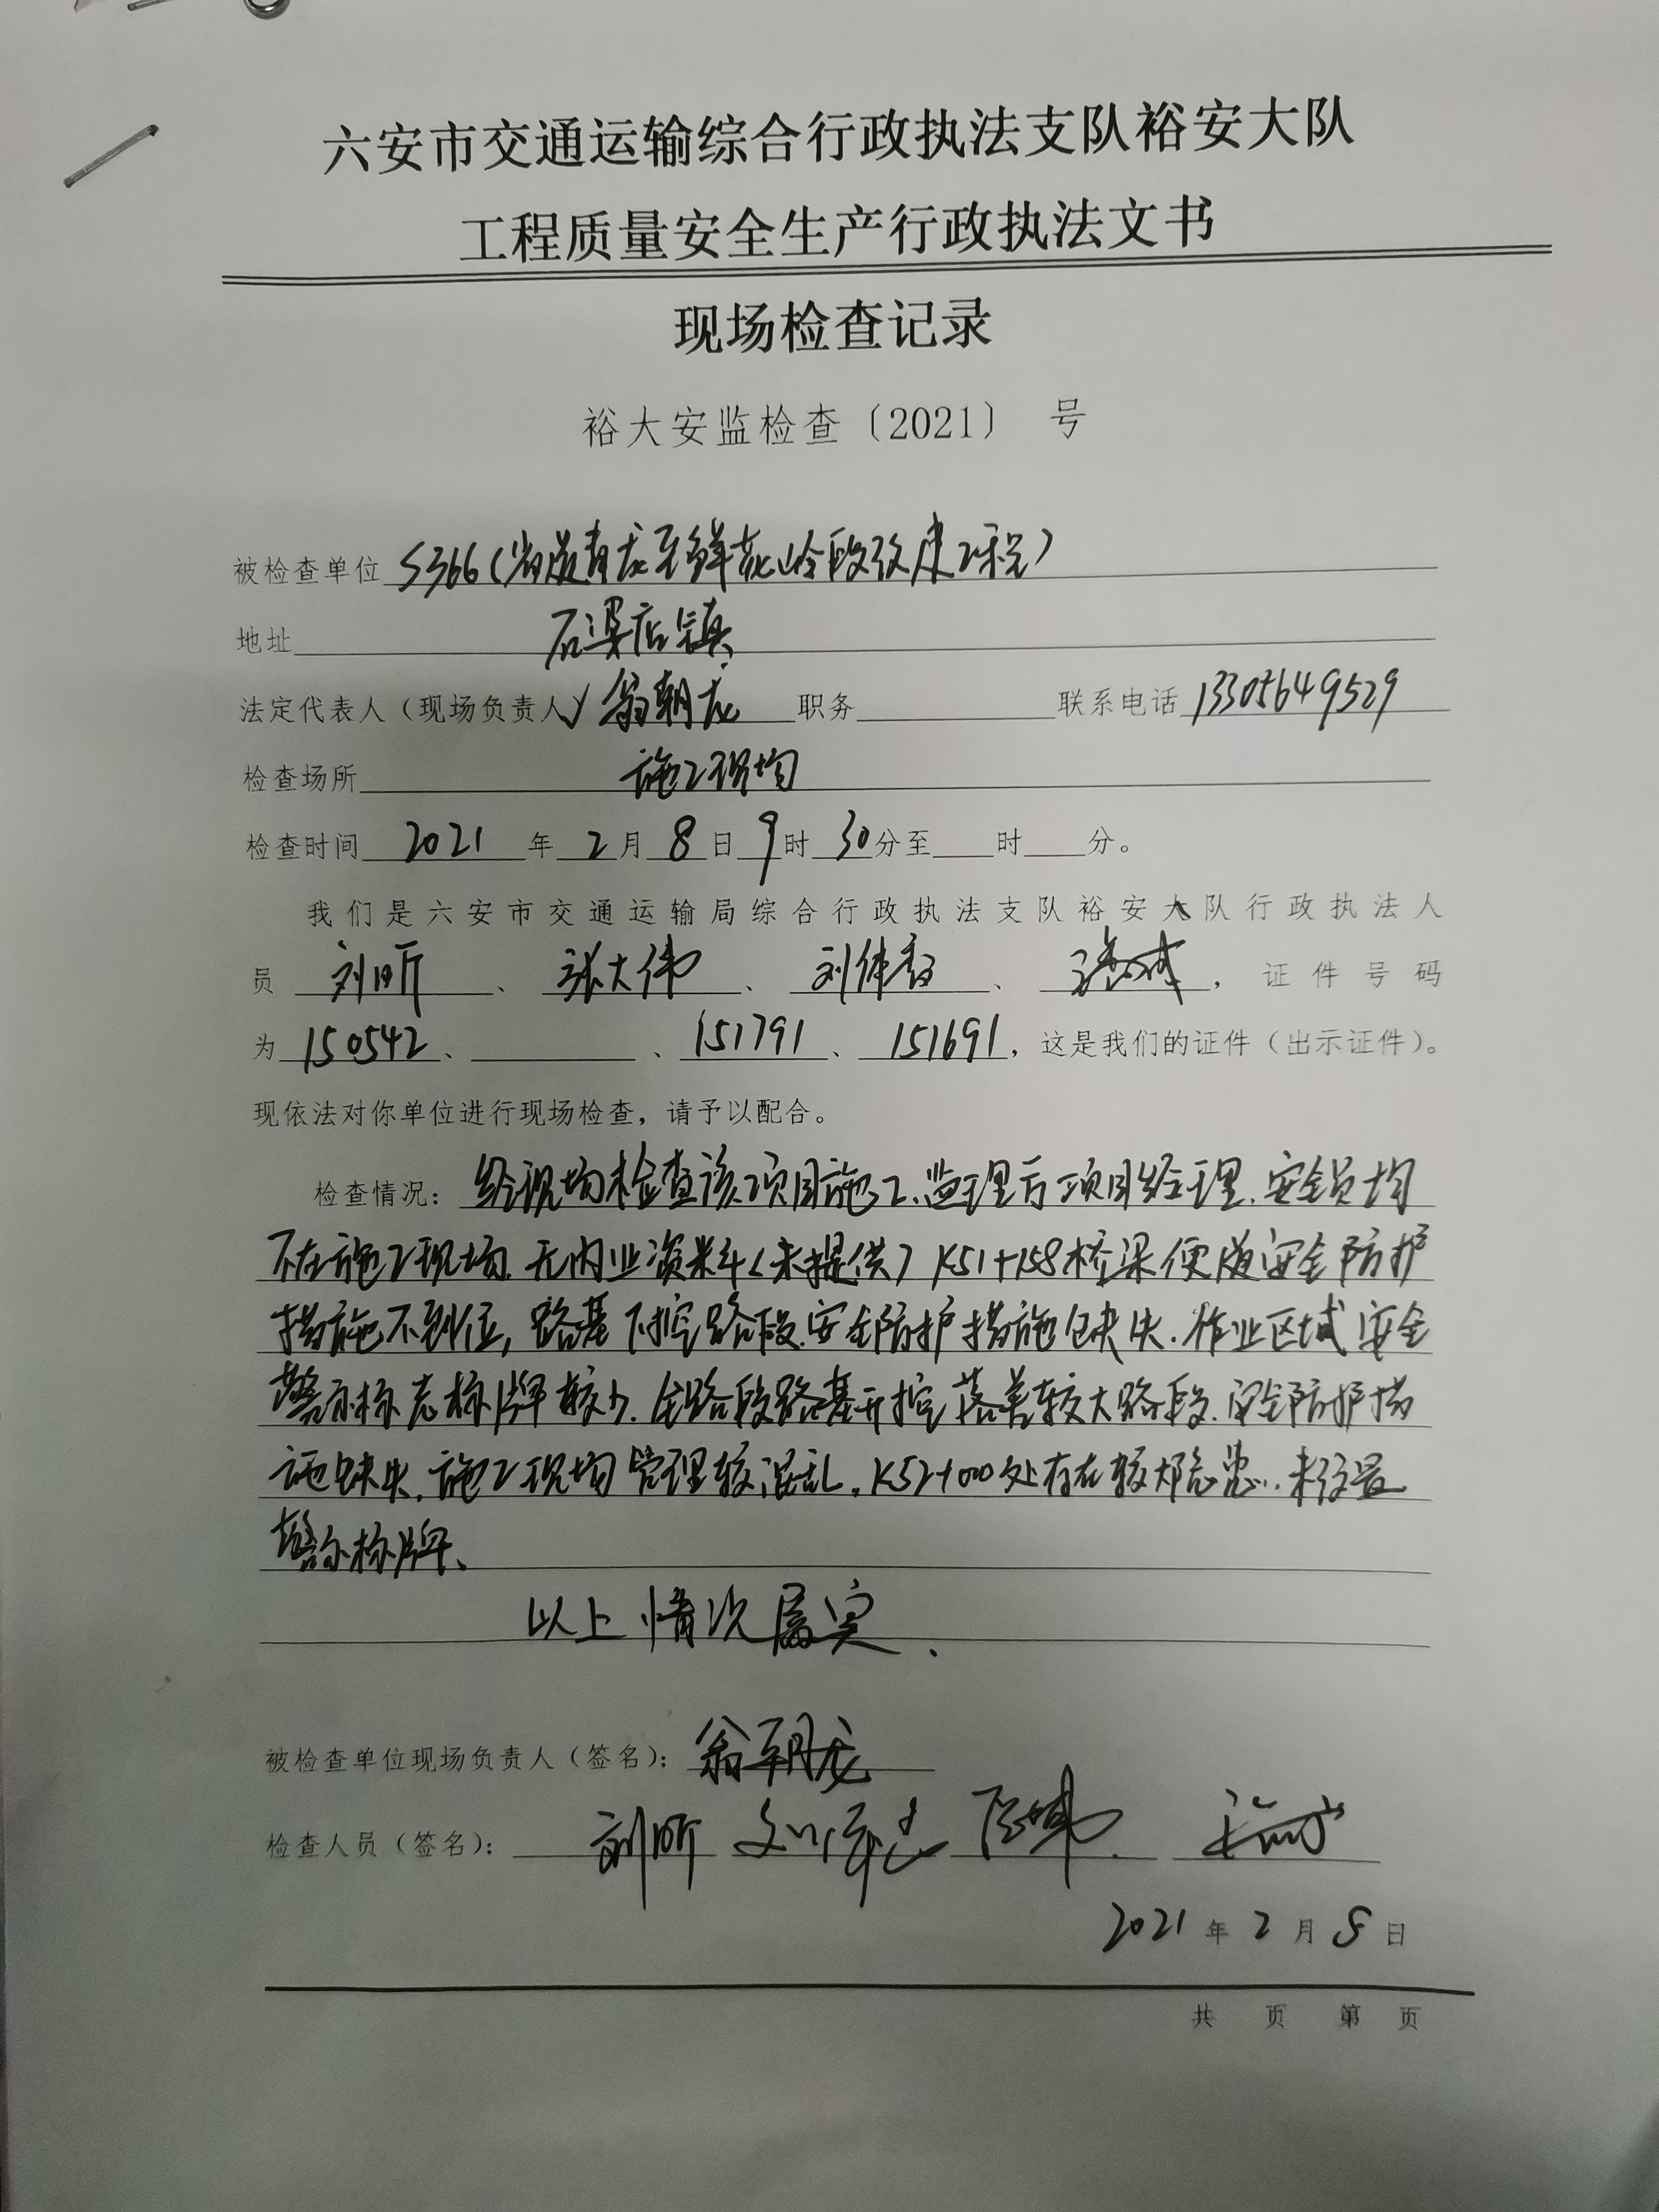 六安市交通运输综合行政执法支队裕安大队
工程质量安全生产行政执法文书
现场检查记录
裕大安监检查〔2021〕 号
被检查单位 S366(省道青龙至鲜花岭段改建工程)
地址 石婆店镇
法定代表人（现场负责人） 翁朝龙 职务 联系电话 13305649529
检查场所 施工现场
检查时间 2021 年 2 月 8 日 9 时 30 分至 时 分。
我们是六安市交通运输局综合行政执法支队裕安大队行政执法人
员 刘昕 、 张大伟 、 刘 、 ，证件号码
为 150542 、 、 151791 、 151691 ，这是我们的证件（出示证件）。
现依法对你单位进行现场检查，请予以配合。
检查情况： 经现场检查该项目施工、监理方项目经理、安全员均
不在施工现场、无内业资料(未提供) K51+158桥梁便道安全防护
措施不到位，路基下挖路段、安全防护措施缺失、作业区域安全
警示标志标牌较少、全路段路基开挖落差较大路段、安全防护措
施缺失、施工现场管理较混乱。K52+000处存在较大隐患、未设置
警示标牌、
以上情况属实、
被检查单位现场负责人（签名）： 翁朝龙
检查人员（签名）： 刘昕
2021 年 2 月 8 日
共 页 第 页